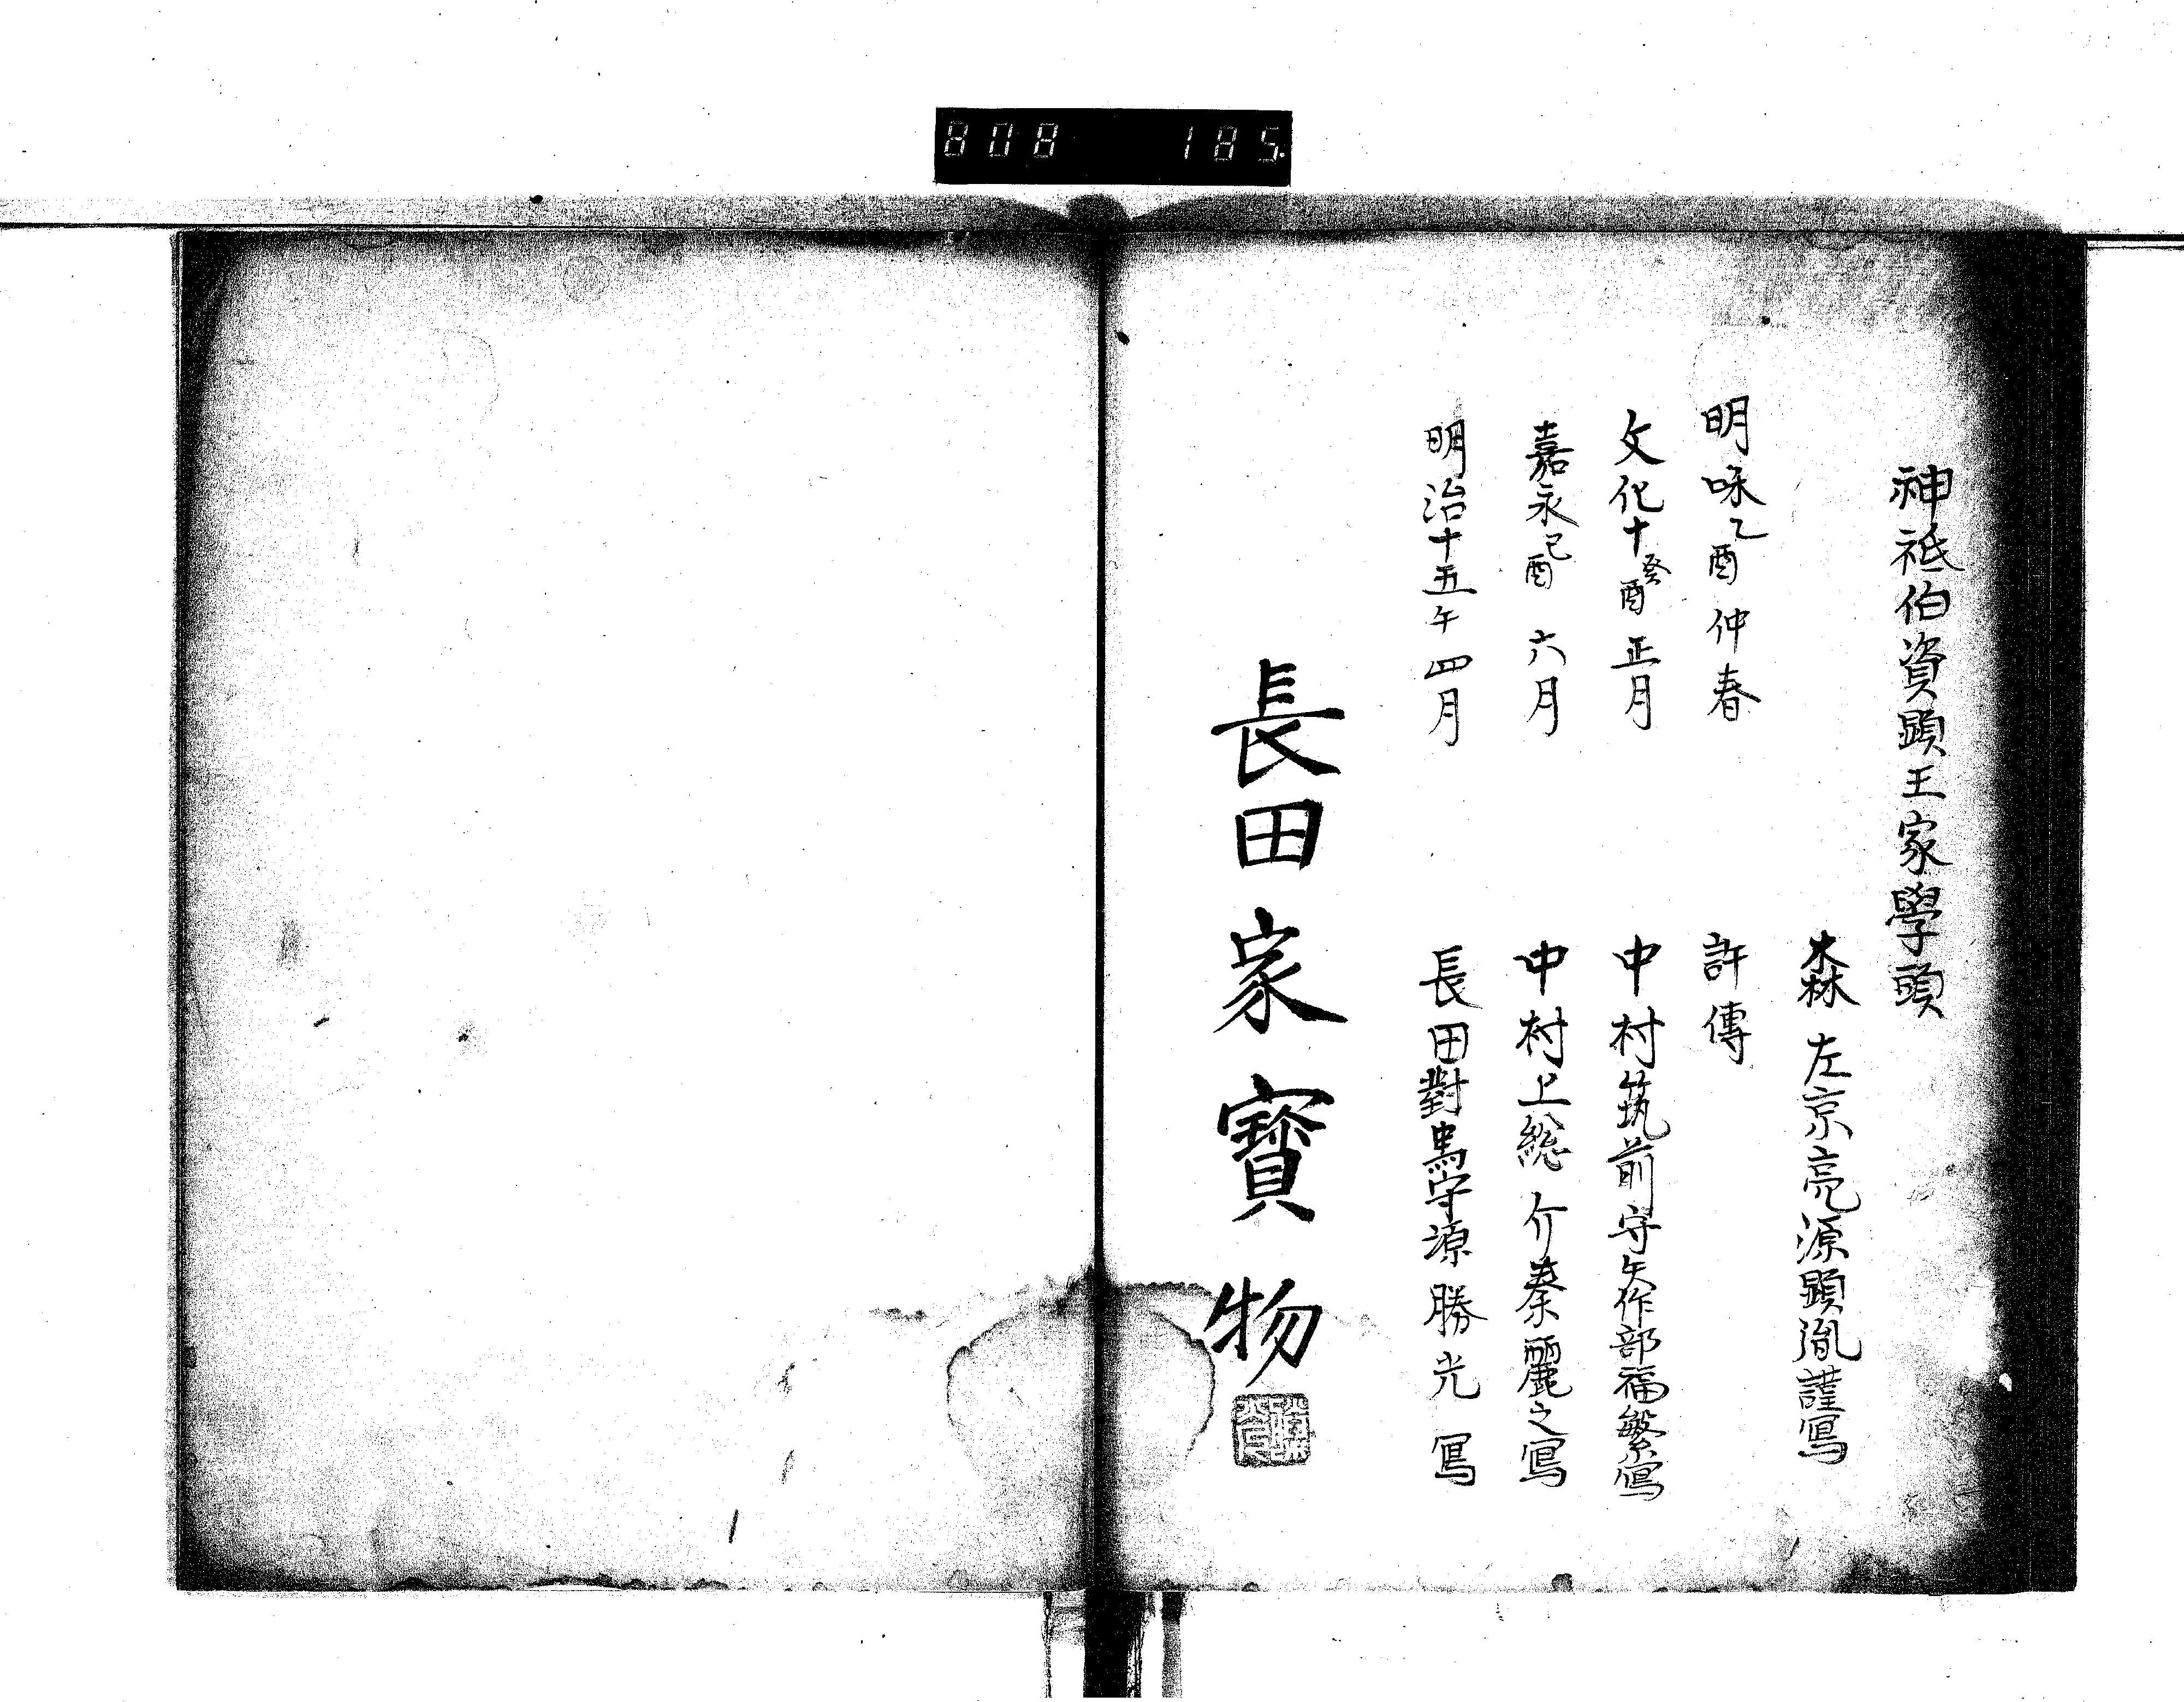 808 185
神祇伯資顕王家學頭
森 左京亮源顕胤謹寫
明和乙酉 仲春 許傳
文化十癸酉 正月 中村筑前守矢作部福繁寫
嘉永己酉 六月 中村上総介秦麗之寫
明治十五午 四月 長田對馬守源勝光寫
長田家寶物